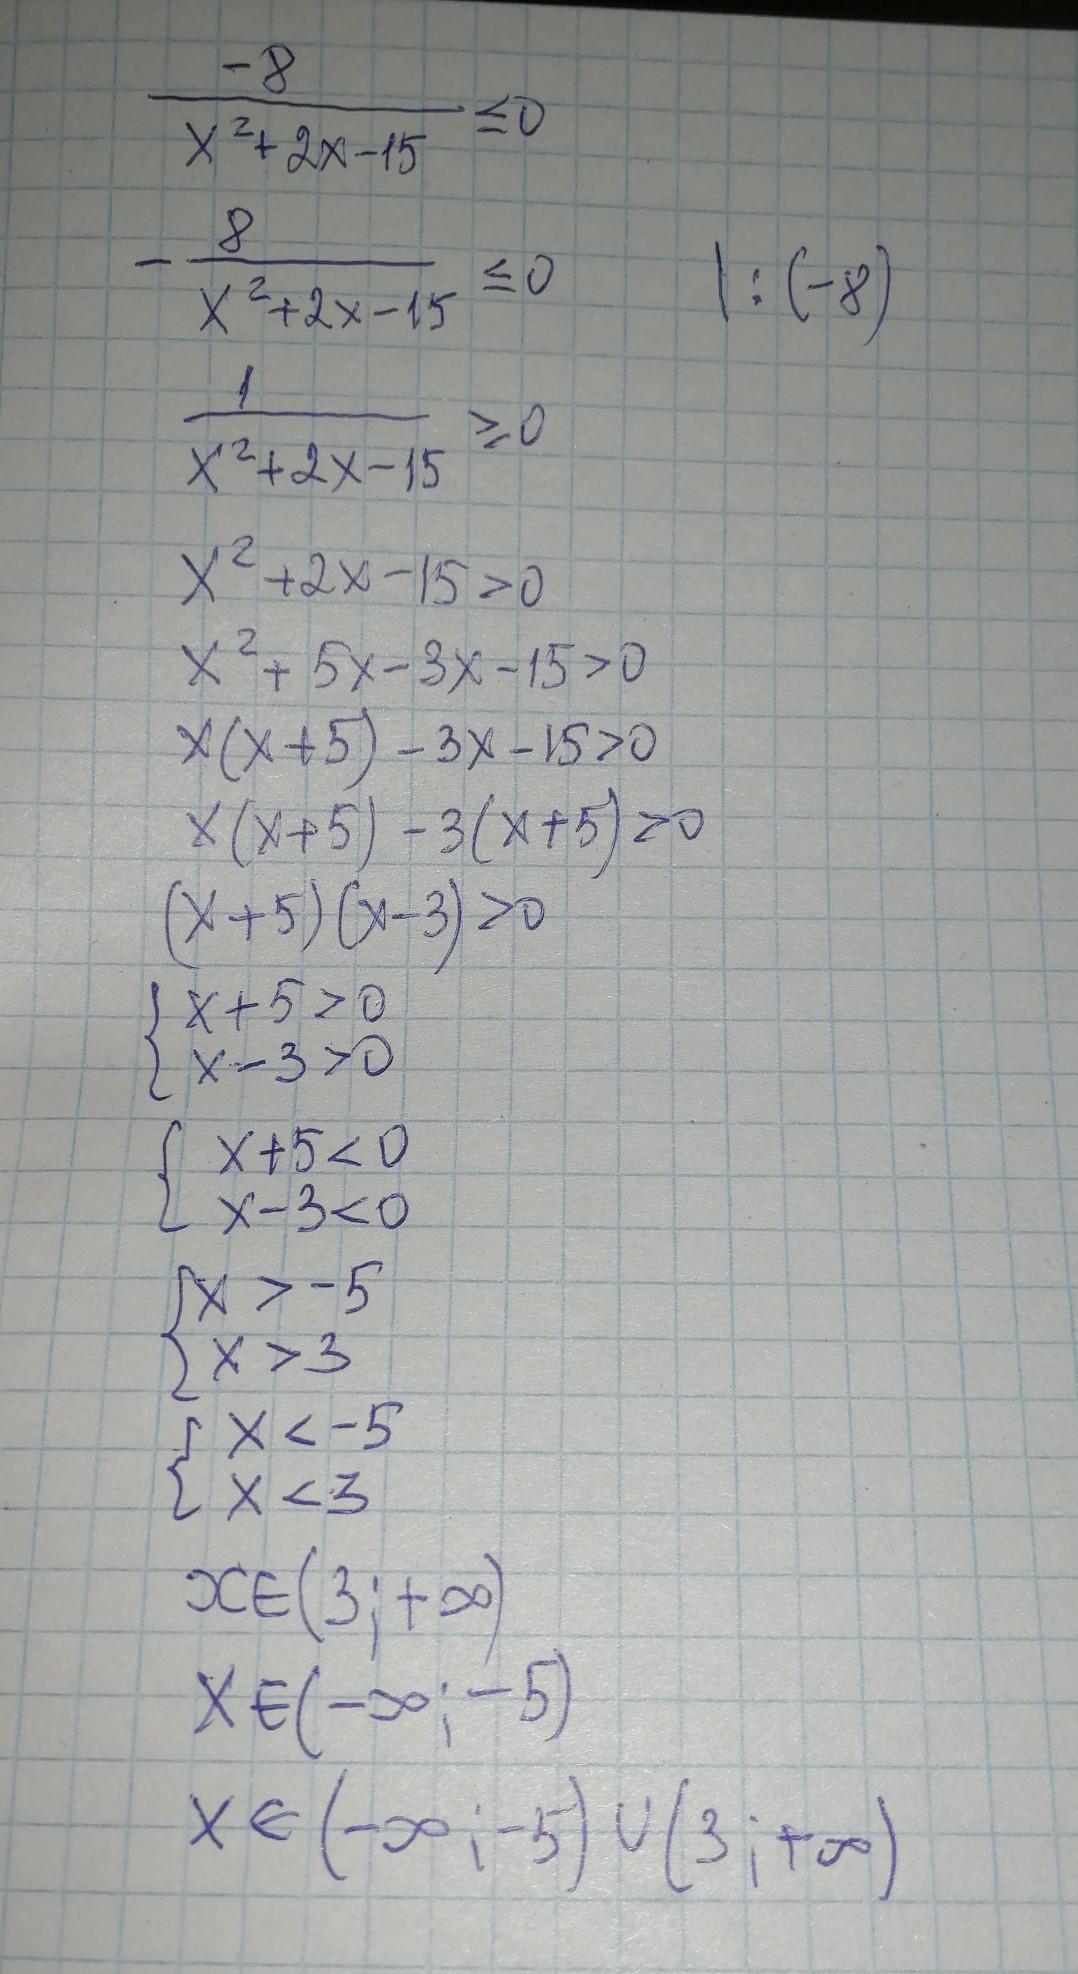 -8
x²+2x-15 ≤0
- 8
x²+2x-15 ≤0 |:(-8)
1
x²+2x-15 ≥0
x²+2x-15>0
x²+5x-3x-15>0
x(x+5)-3x-15>0
x(x+5)-3(x+5)>0
(x+5)(x-3)>0
{x+5>0
x-3>0
{x+5<0
x-3<0
{x>-5
x>3
{x<-5
x<3
x∈(3;+∞)
x∈(-∞;-5)
x∈(-∞;-5)∪(3;+∞)